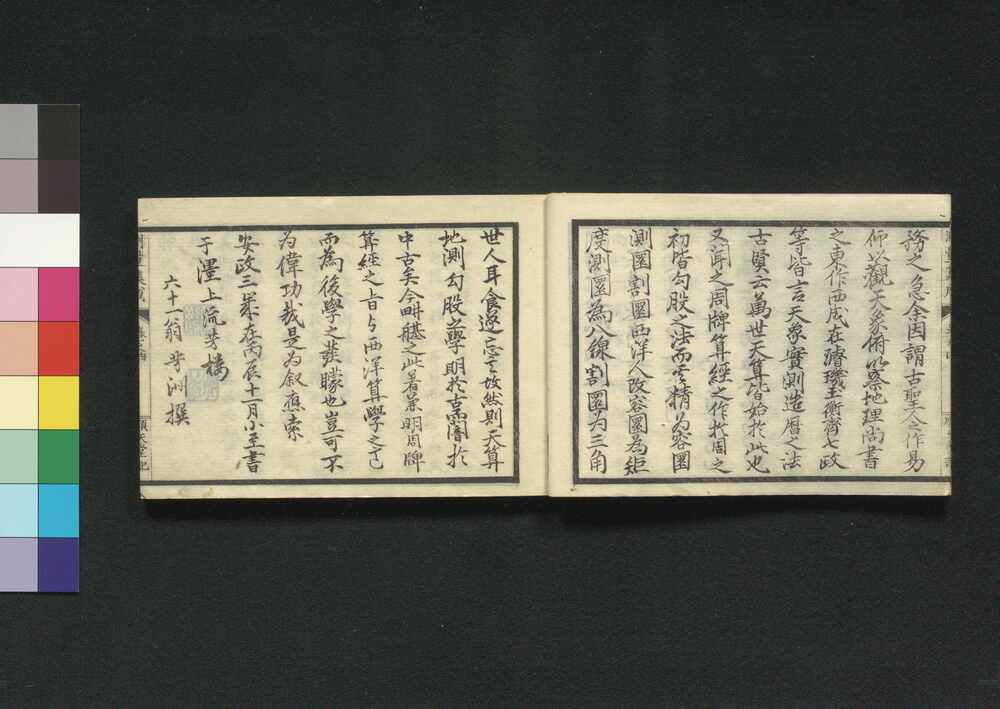 務之急余因謂古聖人之作易
仰以觀天象俯以察地理尚書
之東作西成在璿璣玉衡齊七政
等皆言天象實測造暦之法
古賢云萬世天算皆始於此也
又聞之周牌算經之作於周之
初皆勾股之法而其精為容圓
測圓割圓西洋人改容圓為矩
度測圓為八線割圓為三角
世人耳食遂忘之故然則天算
地測勾股之學明於古而闇於
中古矣今畊雲之此著兼明周牌
算經之旨与西洋算學之
而為後學之發矇也豈可不
為偉功哉是為叙應索
安政三歳在丙辰十一月小至書
于墨上流芳樓
六十一翁 芳洲 撰